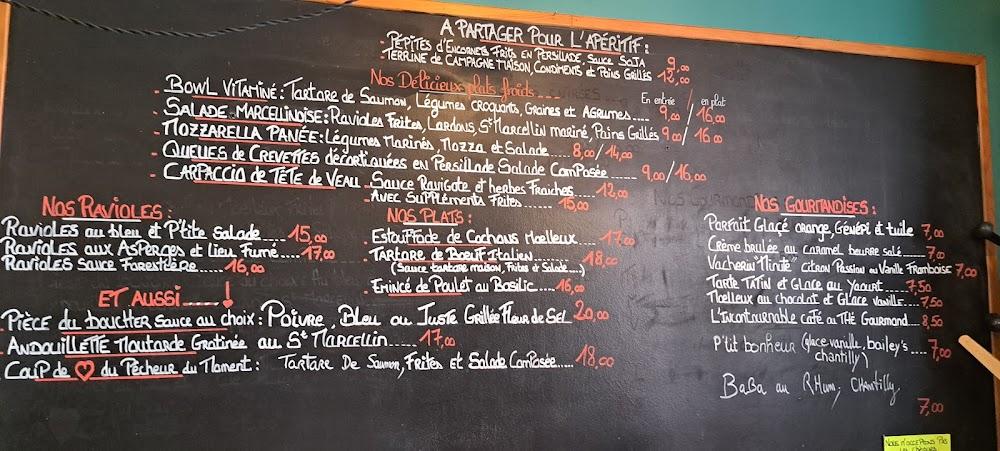 A PARTAGER POUR L'APÉRITIF :
- PÉPITES d'ENCORNETS FRITS EN PERSILLADE, SAUCE SOJA 9,00
- TERRINE de CAMPAGNE MAISON, CONDIMENTS et PAINS GRILLÉS 12,00
Nos Délicieux plats froids
En entrée / en plat
- BOWL VITAMINÉ : TARTARE de SAUMON, LÉGUMES CROQUANTS, GRAINES et AGRUMES.... 9,00 / 16,00
- SALADE MARCELLINOISE : RAVIOLES FRITES, LARDONS, St MARCELLIN MARINÉ, PAINS GRILLÉS 9,00 / 16,00
- MOZZARELLA PANÉE : LÉGUMES MARINÉS, MOZZA et SALADE.... 8,00 / 14,00
- QUEUES de CREVETTES décortiquées EN PERSILLADE SALADE COMPOSÉE ...... 9,00 / 16,00
- CARPACCIO de TÊTE de VEAU . SAUCE RAVIGOTE et herbes FRAICHES ...... 12,00
- AVEC SUPPLÉMENTS FRITES ...... 15,00
NOS RAVIOLES :
RAVIOLES au bleu et P'tite SALADE..... 15,00
RAVIOLES AUX ASPERGES et LIEU FUMÉ..... 17,00
RAVIOLES SAUCE FORESTIÈRE...... 16,00
NOS PLATS :
- ESTOUFFADE de COCHONS MOELLEUX..... 17,00
- TARTARE de BŒUF ITALIEN ....... 18,00
(SAUCE TARTARE MAISON, FRITES et SALADE....)
- ÉMINCÉ de POULET au BASILIC..... 16,00
ET AUSSI ...... !
- PIÈCE du BOUCHER SAUCE au choix : POIVRE, BLEU ou JUSTE GRILLÉE FLEUR de SEL 20,00
- ANDOUILLETTE MOUTARDE GRATINÉE au St MARCELLIN...... 17,00
- COUP de ♥ du PÊCHEUR du MOMENT : TARTARE DE SAUMON, FRITES et SALADE COMPOSÉE..... 18,00
NOS GOURMANDISES :
PARFAIT GLAÇÉ orange, GÉNÉPI et tuile 7,00
CRÈME brulée au CARAMEL beurre salé ... 7,00
VACHERIN "MINUTE" CITRON PASSION ou VANILLE FRAMBOISE 7,00
TARTE TATIN et GLACE au YAOURT..... 7,50
MOELLEUX au chocolat et GLACE VANILLE..... 7,50
L'INCONTOURNABLE CAFÉ ou THÉ GOURMAND... 8,50
P'tit bonheur (glace vanille, bailey's.... 7,00
chantilly)
BABA au RHUM, CHANTILLY
7,00
NOUS N'ACCEPTONS PAS
LES CHÈQUES